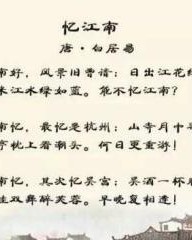 忆江南
唐·白居易
南好，风景旧曾谙：日出江花红
来江水绿如蓝。能不忆江南？
南忆，最忆是杭州；山寺月中寻
亭枕上看潮头。何日更重游！
南忆，其次忆吴宫；吴酒一杯春
娃双舞醉芙蓉。早晚复相逢！